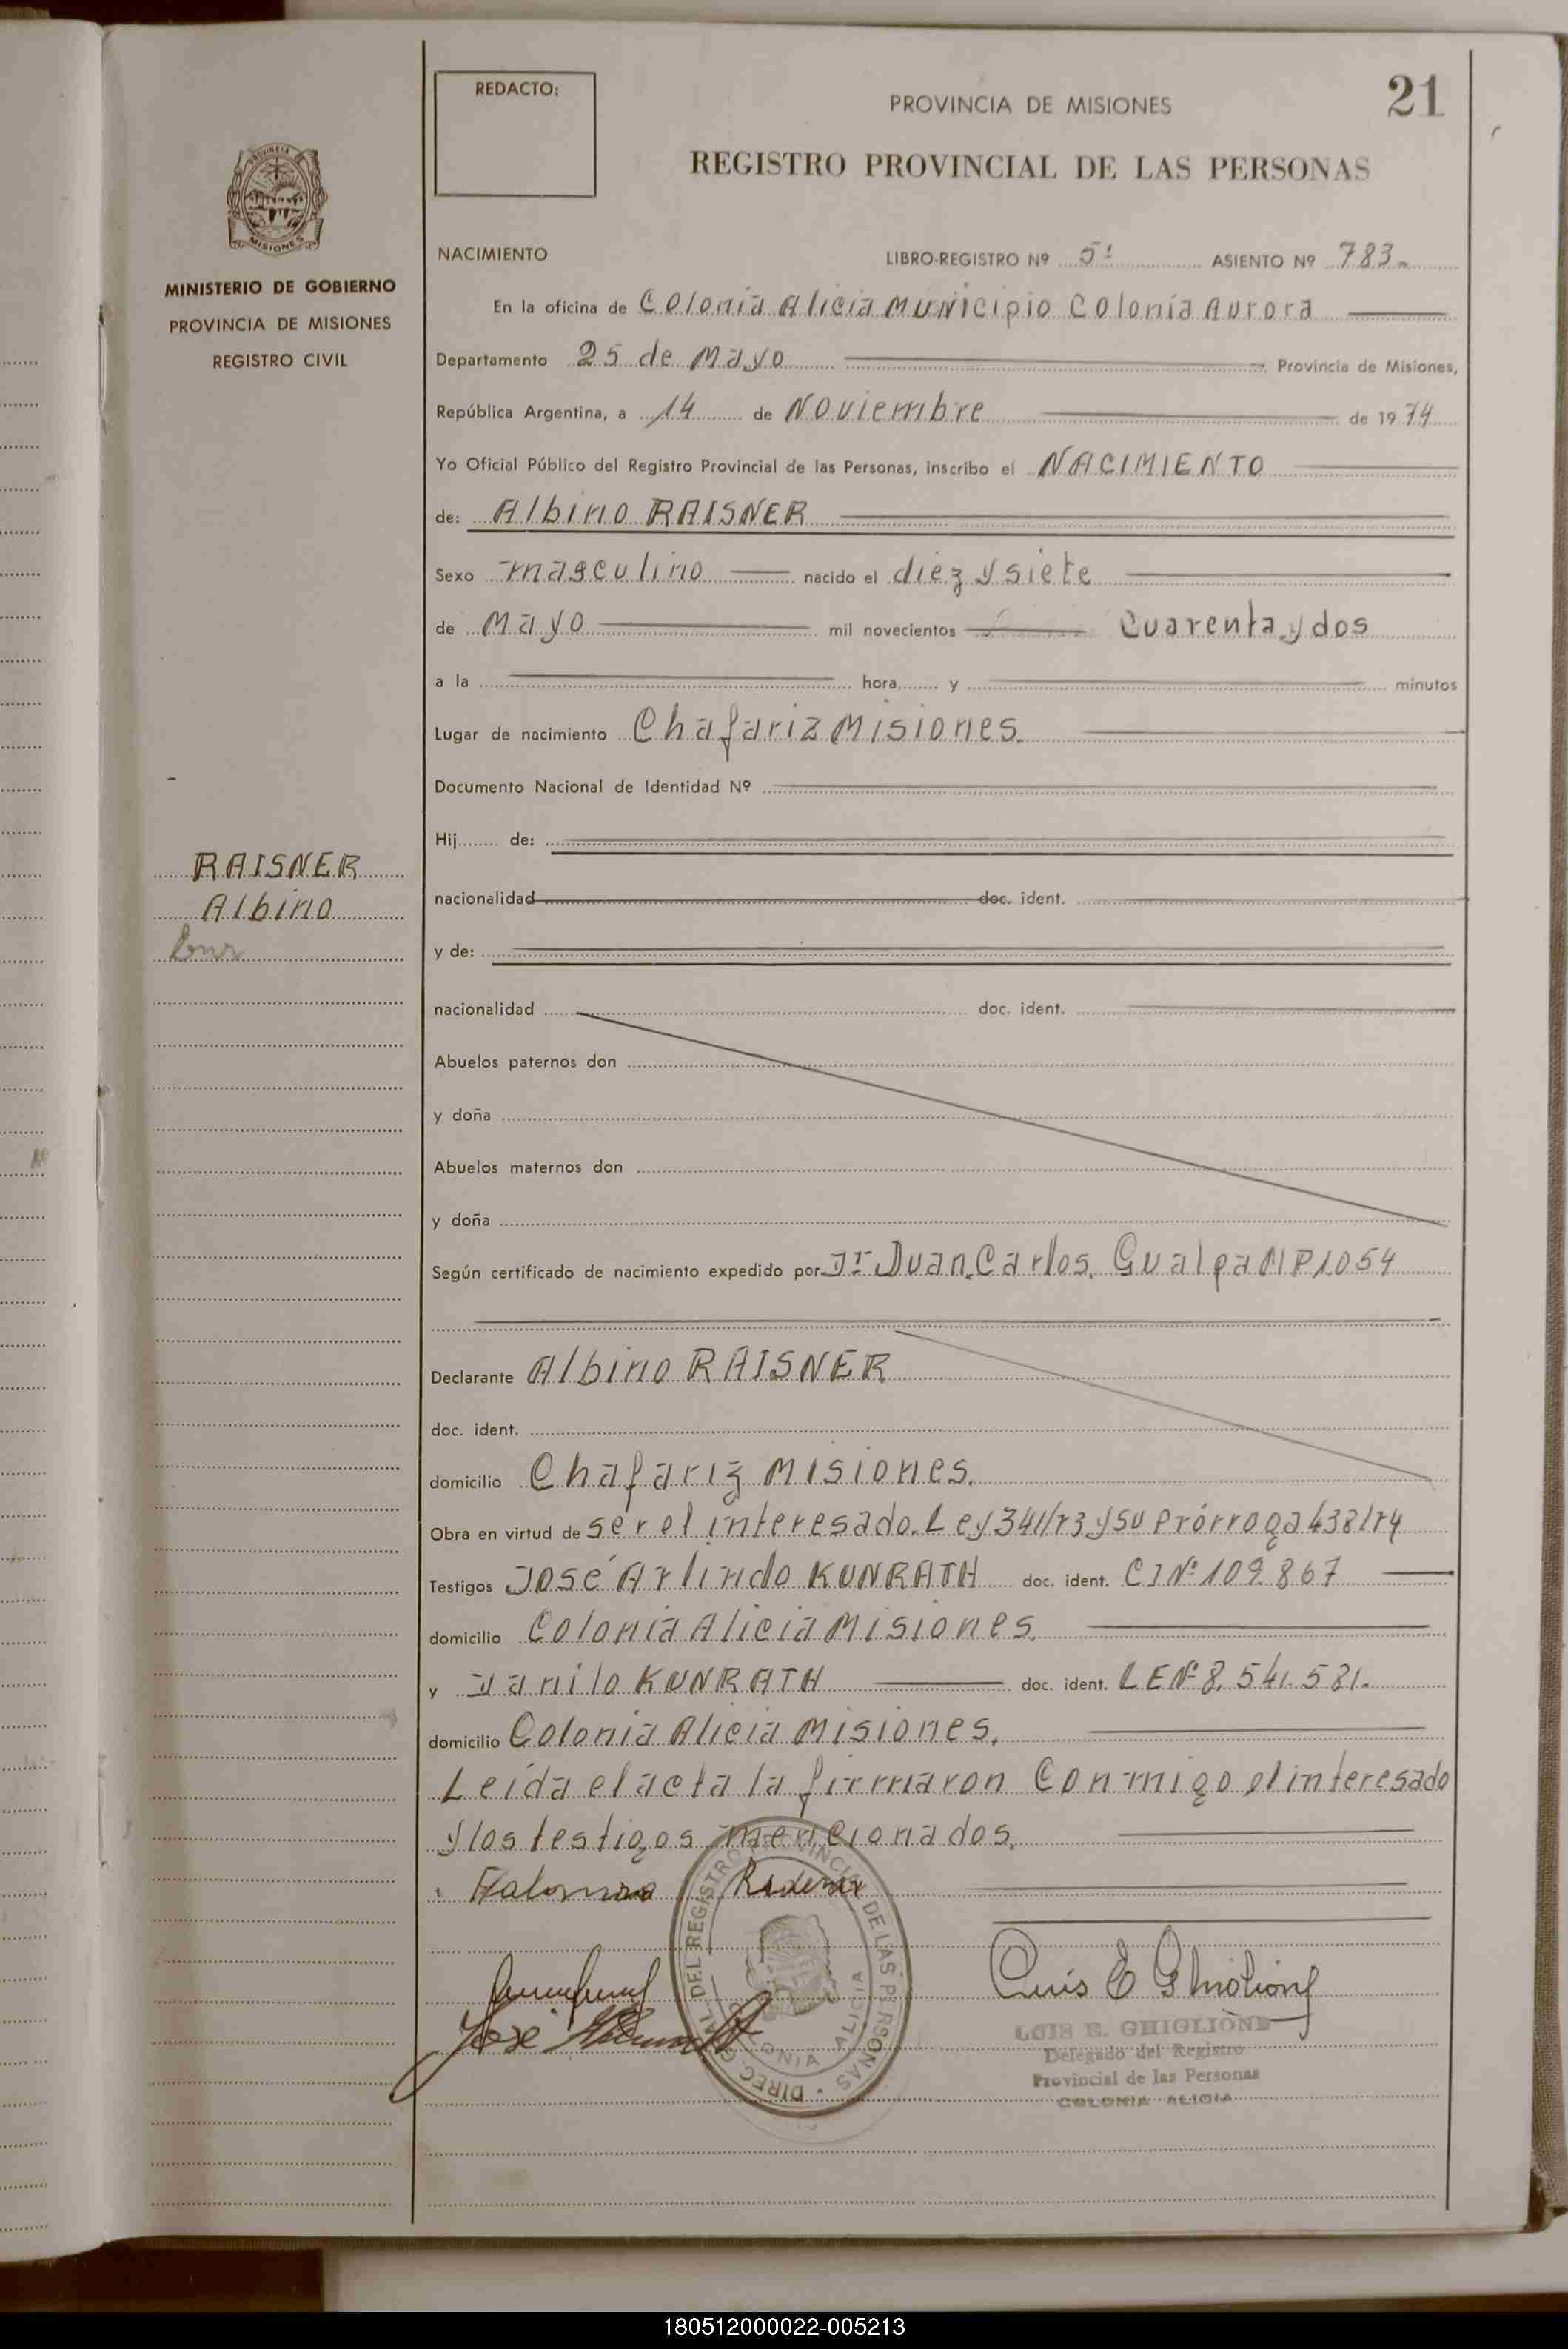 REDACTO:
PROVINCIA DE MISIONES
21
REGISTRO PROVINCIAL DE LAS PERSONAS
PROVINCIA DE
MISIONES
MINISTERIO DE GOBIERNO
PROVINCIA DE MISIONES
REGISTRO CIVIL
NACIMIENTO LIBRO-REGISTRO Nº 5º ASIENTO Nº 783.
En la oficina de Colonia Alicia Municipio Colonia Aurora
Departamento 25 de Mayo Provincia de Misiones,
República Argentina, a 14 de Noviembre de 1974
Yo Oficial Público del Registro Provincial de las Personas, inscribo el NACIMIENTO
de: Albino RAISNER
Sexo masculino nacido el diez y siete
de Mayo mil novecientos Cuarenta y dos
a la hora y minutos
Lugar de nacimiento Chafariz Misiones.
Documento Nacional de Identidad Nº
Hij de:
RAISNER
Albino
nacionalidad doc. ident.
y de:
nacionalidad doc. ident.
Abuelos paternos don
y doña
Abuelos maternos don
y doña
Según certificado de nacimiento expedido por Dr Juan Carlos Gualpa MP1054
Declarante Albino RAISNER
doc. ident.
domicilio Chafariz Misiones.
Obra en virtud de ser el interesado. Ley 341/73 y su Prórroga 438/74
Testigos José Arlindo KUNRATH doc. ident. CI Nº 109867
domicilio Colonia Alicia Misiones.
y Danilo KUNRATH doc. ident. LE Nº 8.541.581.
domicilio Colonia Alicia Misiones.
Leída el acta la firmaron Conmigo el interesado
y los testigos mencionados.
José
Luis E Ghiglione
DIREC. GRAL. DEL REGISTRO PROVINCIAL DE LAS PERSONAS
COLONIA ALICIA
LUIS E. GHIGLIONE
Delegado del Registro
Provincial de las Personas
COLONIA ALICIA
180512000022-005213